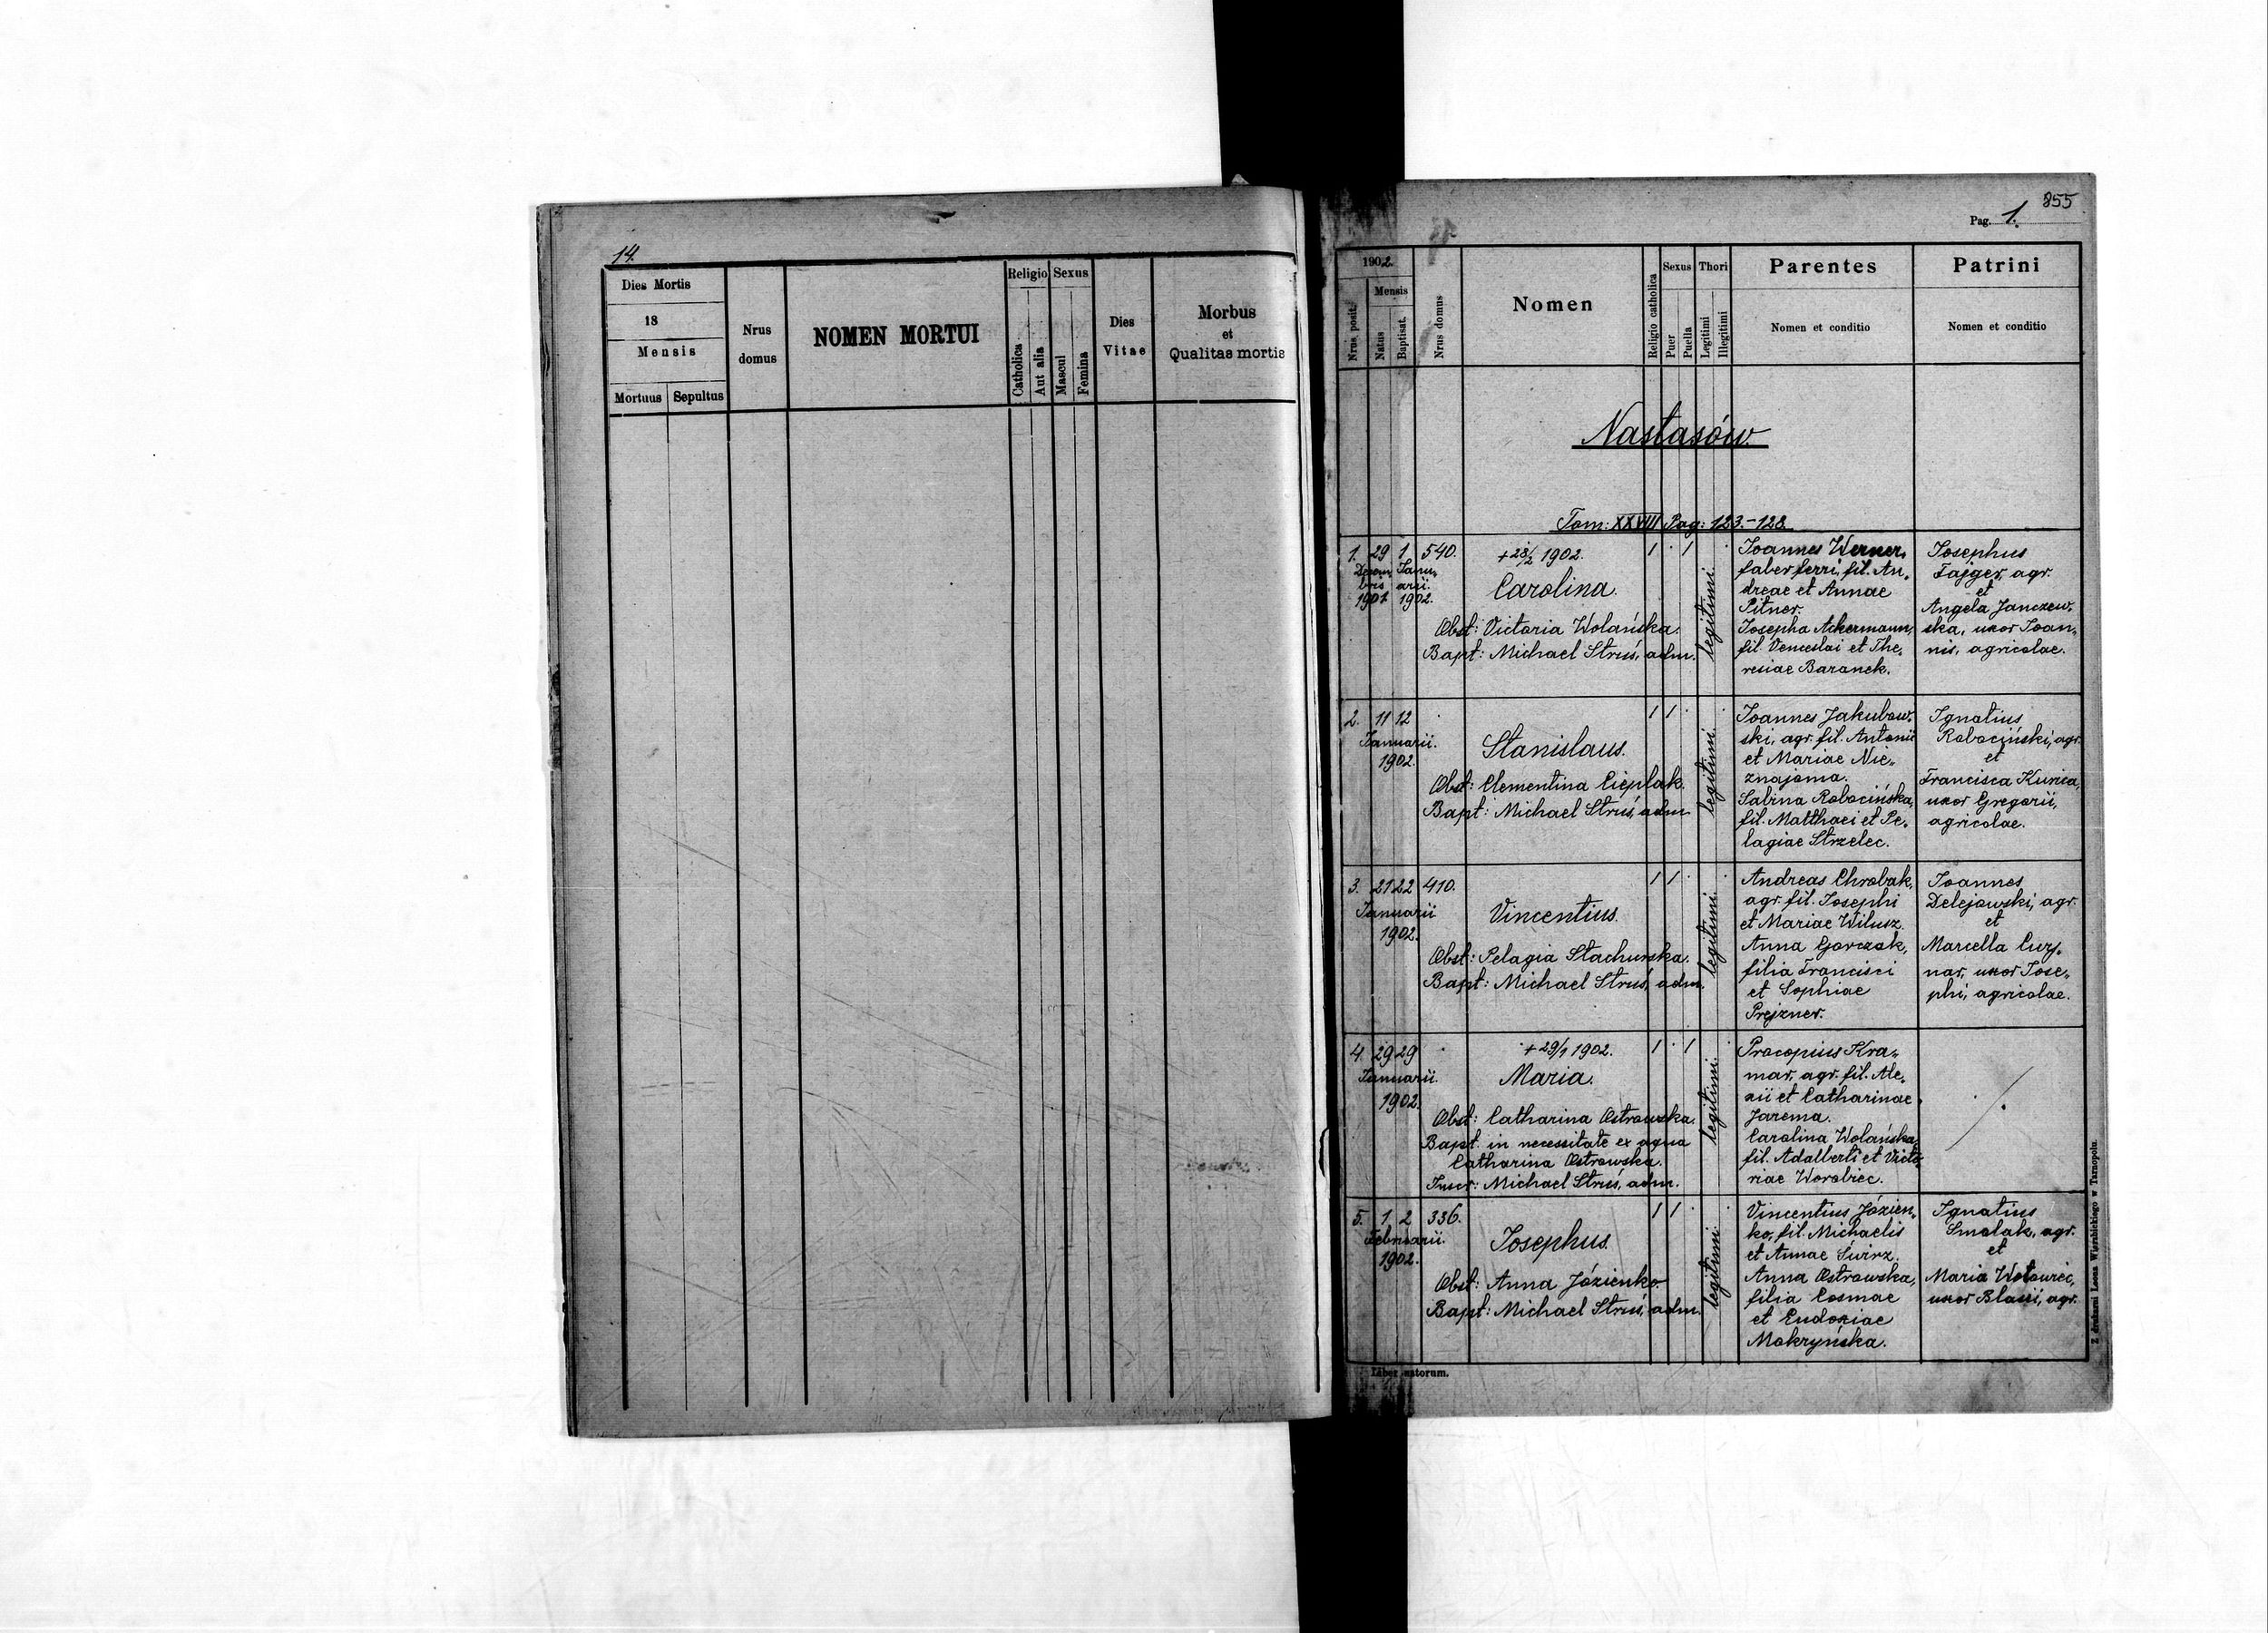 14.
Dies Mortis
18
Mensis
Mortuus
Sepultus
Nrus
domus
NOMEN MORTUI
Religio
Catholica
Aut alia
Sexus
Mascul
Femina
Dies
Vitae
Morbus
et
Qualitas mortis
855
Pag. 1.
1902.
Nrus posit.
Mensis
Natus
Baptisat.
Nrus domus
Nomen
Religio catholica
Sexus
Puer
Puella
Thori
Legitimi
Illegitimi
Parentes
Nomen et conditio
Patrini
Nomen et conditio
Nastasów
Tom: XXVIII Pag: 123.-128.
1. 29 1 540.
Decem„ Janu„
bris arii
1901 1902.
+ 28/2 1902.
Carolina.
Obst: Victoria Wolańska.
Bapt: Michael Struś, adm.
legitimi.
Joannes Werner,
faber ferri, fil. An„
dreae et Annae
Pitner.
Josepha Ackermann,
fil. Venceslai et The„
resiae Baranek.
Josephus
Fajger, agr.
et
Angela Janczew„
ska, uxor Joan„
nis, agricolae.
2. 11 12
Januarii.
1902.
Stanislaus.
Obst: Clementina Cieplak.
Bapt: Michael Struś, adm.
legitimi.
Joannes Jakubow„
ski, agr. fil. Antonii
et Mariae Nie„
znajoma.
Sabina Robocińska,
fil. Matthaei et Pe„
lagiae Strzelec.
Ignatius
Robociński, agr.
et
Francisca Kurica,
uxor Gregorii,
agricolae.
3. 21 22 410.
Januarii
1902.
Vincentius.
Obst: Pelagia Stachurska.
Bapt: Michael Struś, adm.
legitimi.
Andreas Chrobak,
agr. fil. Josephi
et Mariae Wilusz.
Anna Gorczak,
filia Francisci
et Sophiae
Prejzner.
Joannes
Delejowski, agr.
et
Marcella Cury„
nar, uxor Jose„
phi, agricolae.
4. 29 29
Januarii.
1902.
+ 29/1 1902.
Maria.
Obst: Catharina Ostrowska.
Bapt. in necessitate ex aqua
Catharina Ostrowska.
Inscr: Michael Struś, adm.
legitimi.
Procopius Kra„
mar, agr. fil. Ale„
xii et Catharinae
Jarema.
Carolina Wolańska,
fil. Adalberti et Victo„
riae Worobiec.
5. 1 2 336.
Februarii.
1902.
Josephus.
Obst: Anna Józienko.
Bapt: Michael Struś, adm.
legitimi.
Vincentius Józien„
ko, fil. Michaelis
et Annae Świrz.
Anna Ostrowska,
filia Cosmae
et Eudoxiae
Mokryńska.
Ignatius
Smolak, agr.
et
Maria Wołowiec,
uxor Blasii, agr.
Liber natorum.
Z drukarni Leona Wierzbickiego w Tarnopolu.